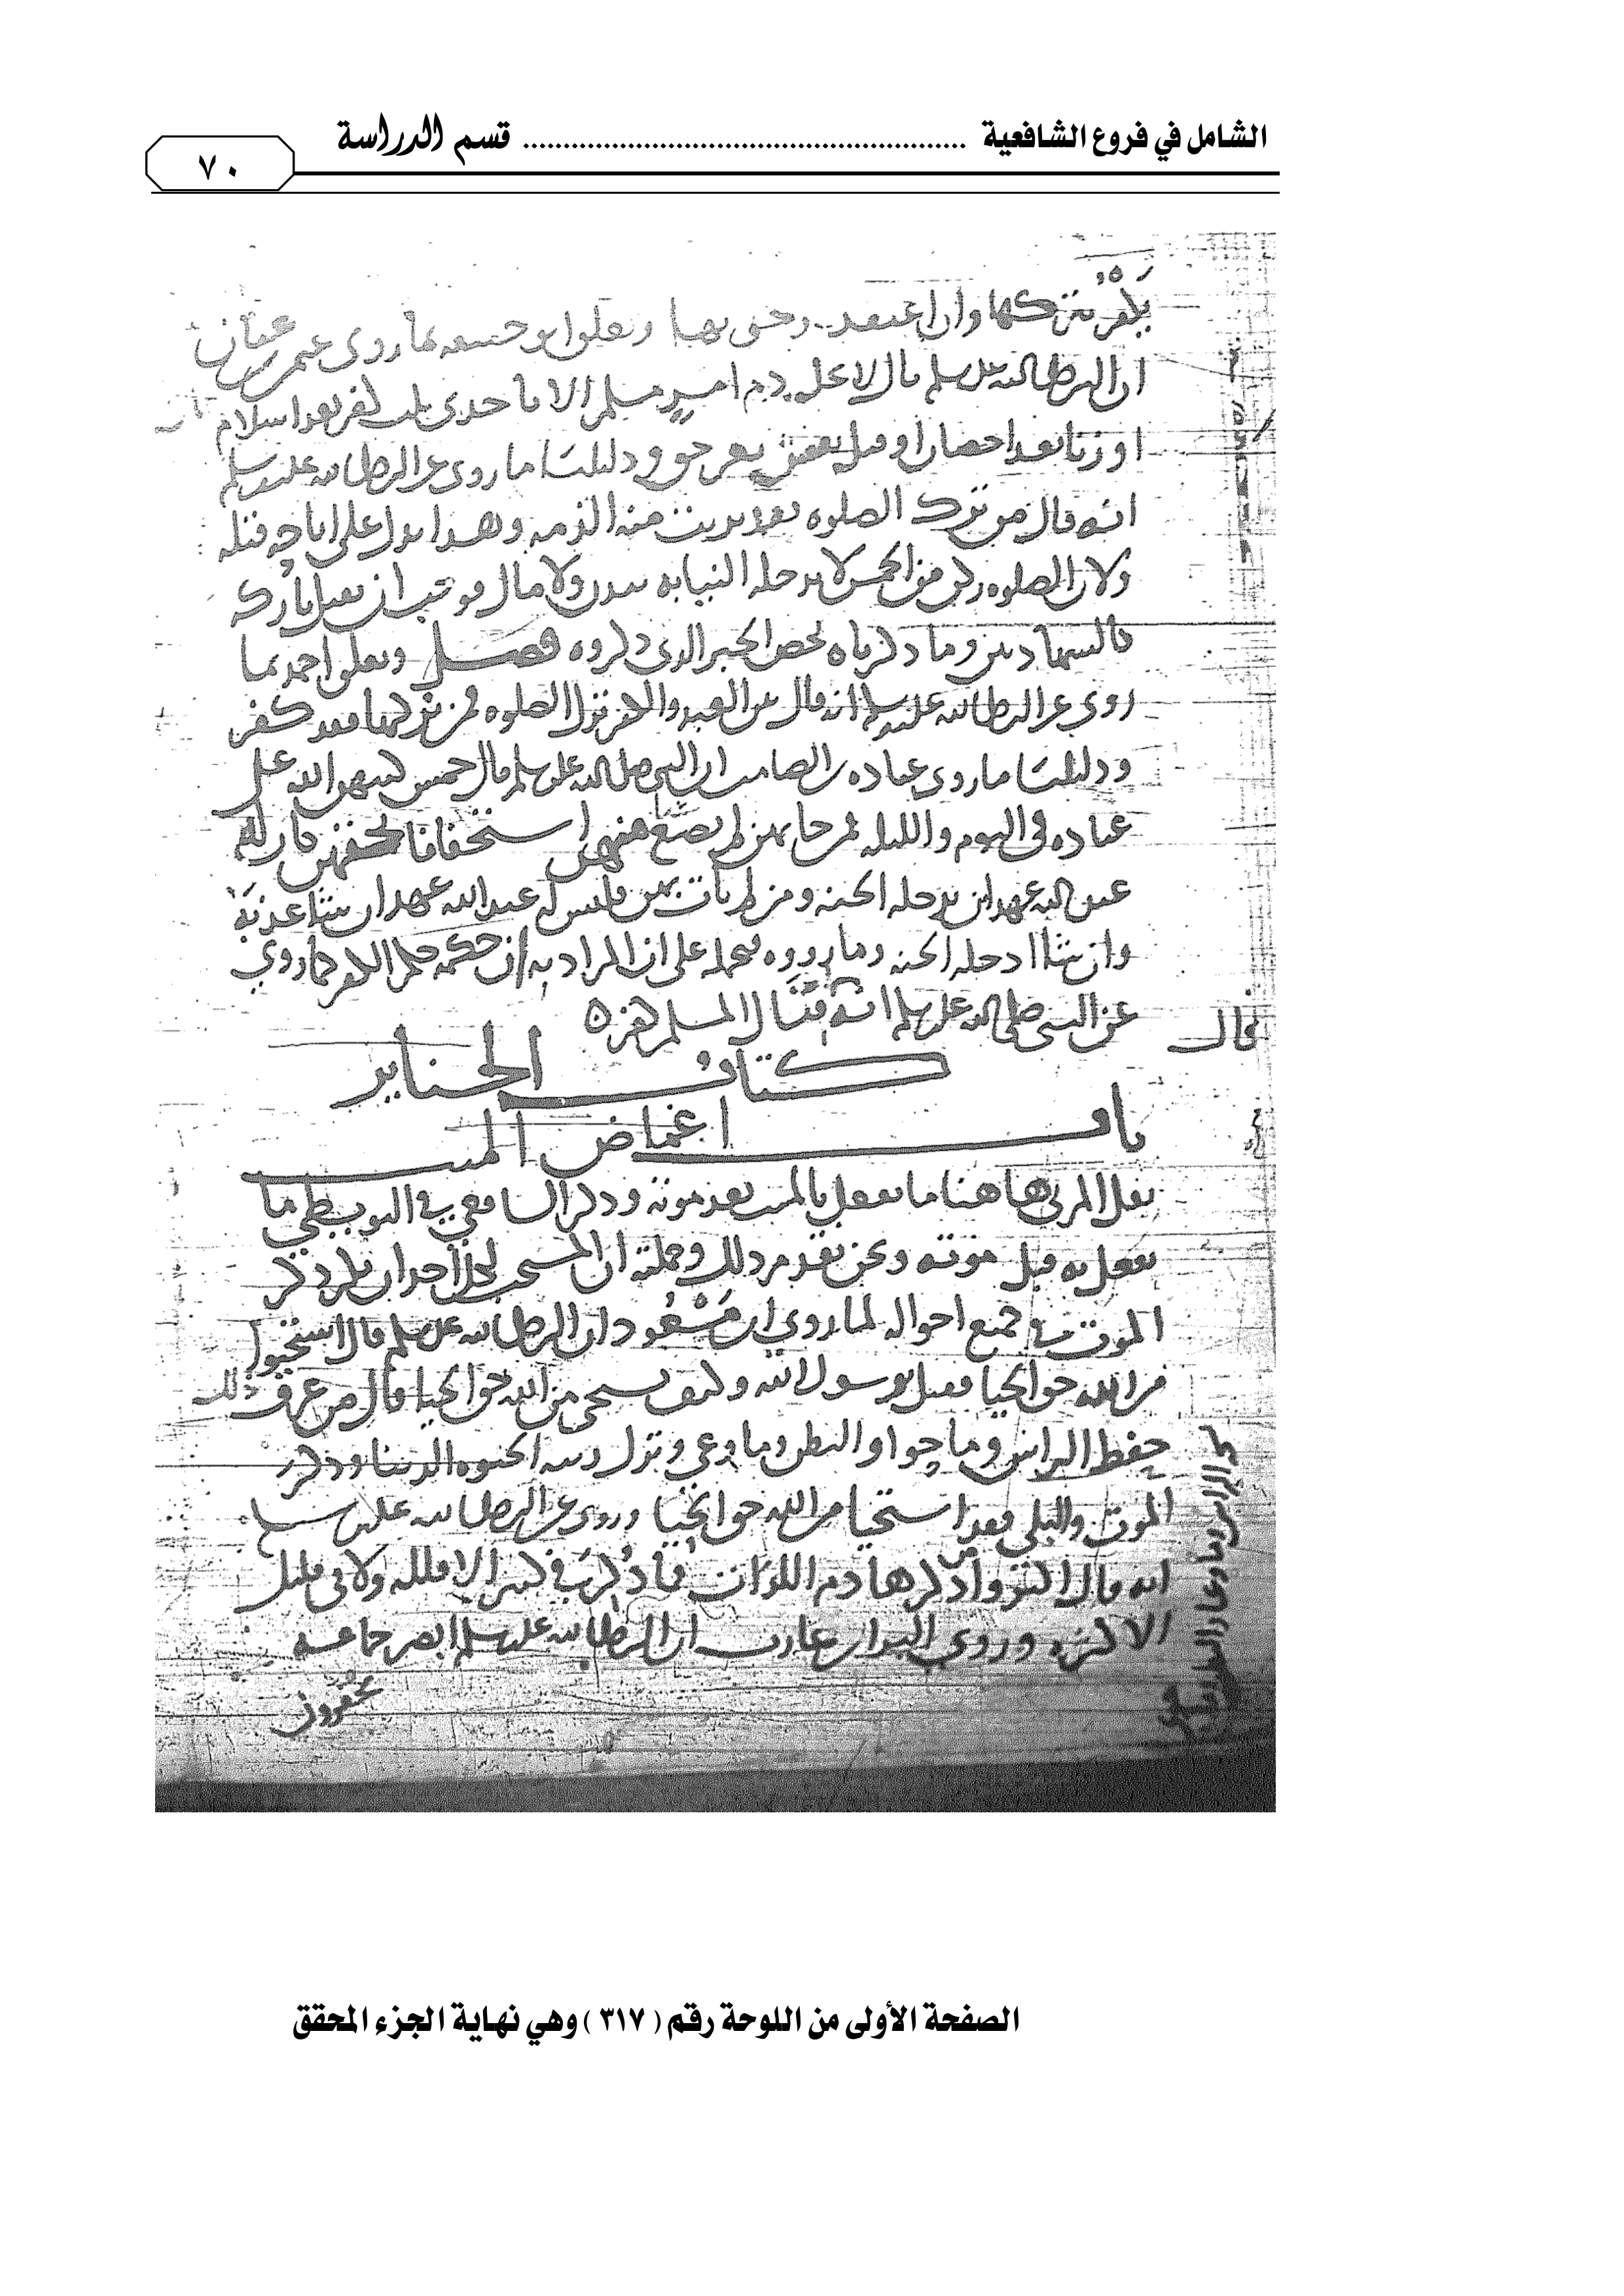 الشامل في فروع الشافعية ........................................................ قسم الدراسة
٧٠
يكفر بتركها وان اعتقد وجوبها وتعلق ابو حنيفة بما روى عثمان
ان النبي صلى الله عليه وسلم قال لا يحل دم امرئ مسلم الا باحدى ثلث كفر بعد اسلام
او زنا بعد احصان او قتل نفس بغير حق ودليلنا ما روى عن النبي صلى الله عليه وسلم
انه قال من ترك الصلوه فقد بريت منه الذمه وهذا يدل على اباحه قتله
ولان الصلوه ركن من الخمس لا يدخله النيابه ببدن ولا مال فوجب ان يقتل تاركه
كالشهادتين وما ذكرناه يخص الخبر الذي ذكروه فصل وتعلق احمد بما
روى عن النبي صلى الله عليه وسلم انه قال بين العبد والكفر ترك الصلوه فمن تركها فقد كفر
ودليلنا ما روى عباده بن الصامت ان النبي صلى الله عليه وسلم قال خمس كتبهن الله على
عباده في اليوم والليله فمن جا بهن لم يضيع منهن استخفافا بحقهن كان له
عند الله عهد ان يدخله الجنه ومن لم يات بهن فليس له عند الله عهد ان شا عذبه
وان شا ادخله الجنه وما رووه نحمله على ان المراد به ان حكمه حكم الكفر كما روي
عن النبي صلى الله عليه وسلم انه قتال المسلم كفر ه
قال
كتاب الجنايز
باب اغماض الميت
نقل المزني هاهنا ما يفعل بالميت بعد موته وذكر الشافعي في البويطي ما
يفعل به قبل موته ونحن نقدم ذلك وجملته ان المستحب لكل احد ان يكثر ذكر
الموت في جميع احواله لما روي ابن مسعود ان النبي صلى الله عليه وسلم قال استحيوا
من الله حق الحيا فقيل يرسول الله وكيف نستحي من الله حق الحيا قال من عرف ذلك
حفظ الراس وما حوا والبطن وما وعى وترك زينه الحيوه الدنيا وذكر
الموت والبلى فقد استحيا من الله حق الحيا وروى عن النبي صلى الله عليه وسلم
انه قال اكثروا ذكر هاذم اللذات فما ذكر في كثير الا قلله ولا في قليل
الا كثره وروي البرا بن عازب ان النبي صلى الله عليه وسلم ابصر جماعه
يحفرون
الصفحة الأولى من اللوحة رقم ( ٣١٧ ) وهي نهاية الجزء المحقق